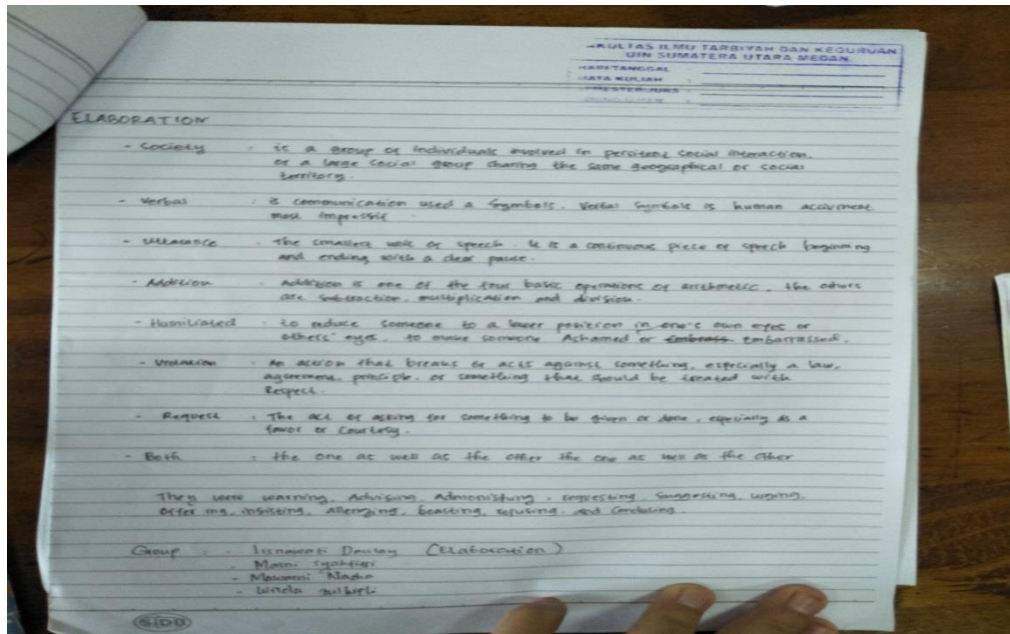 FAKULTAS ILMU TARBIYAH DAN KEGURUAN
UIN SUMATERA UTARA MEDAN
HARI/TANGGAL
MATA KULIAH :
SEMESTER/JURS :
ELABORATION
- Society : is a group of individuals involved in persitent social interaction,
or a large social group sharing the same geographical or social
territory.
- Verbal : is communication used a symbols. Verbal symbols is human
most impressif
- Utterance : The smallest unit of speech. It is a continuous piece of speech beginning
and ending with a clear pause.
- Addition : Addition is one of the four basic operations of arithmetic, the others
are subtraction, multiplication and division.
- Humiliated : to reduce someone to a lower position in one's own eyes or
others' eyes, to make someone Ashamed or embrass embarrassed.
- Violation : An action that breaks or acts against something, especially a law,
agreement, principle, or something that should be treated with
Respect.
- Request : The act of asking for something to be given or done, especially as a
favor or Courtesy.
- Both : the one as well as the other the one as well as the other
They were warning, Advising, Admonishing, requesting, suggesting, urging,
offering, insisting, boasting, refusing, and
Group : - Lisnawati Daulay (Elaboration)
- Masni
-
-
SIDU